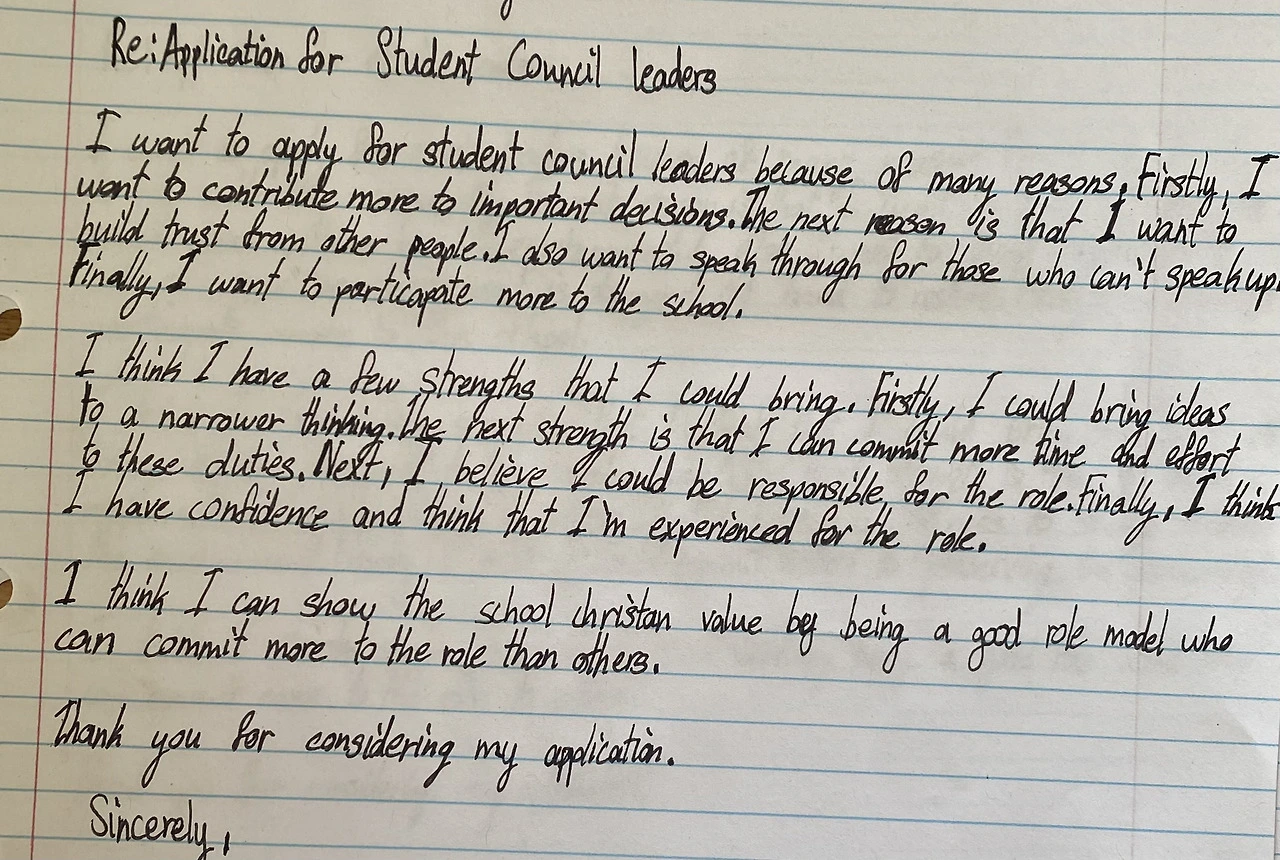 Re: Application for Student Council leaders
I want to apply for student council leaders because of many reasons. Firstly, I
want to contribute more to important decisions. The next reason is that I want to
build trust from other people. I also want to speak through for those who can't speak up.
Finally, I want to particapate more to the school.
I think I have a few strengths that I could bring. Firstly, I could bring ideas
to a narrower thinking. The next strength is that I can commit more time and effort
to these duties. Next, I believe I could be responsible for the role. Finally, I think
I have confidence and think that I'm experienced for the role.
I think I can show the school christan value by being a good role model who
can commit more to the role than others.
Thank you for considering my application.
Sincerely,